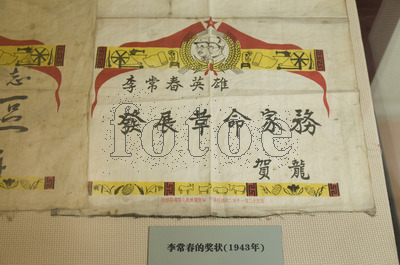 志
李常春英雄
發展革命家務
賀龍
fotoe
李常春的奖状(1943年)